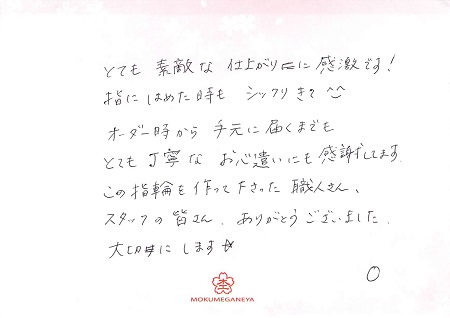 とても 素敵な 仕上がりに 感激です!
指に はめた時も シックリ きて ^^
オーダー時から 手元に 届くまでも
とても 丁寧な お心遣いにも 感謝してます
この 指輪を 作って下さった 職人さん、
スタッフの 皆さん、ありがとうございました.
大切に します☆
木
MOKUMEGANEYA